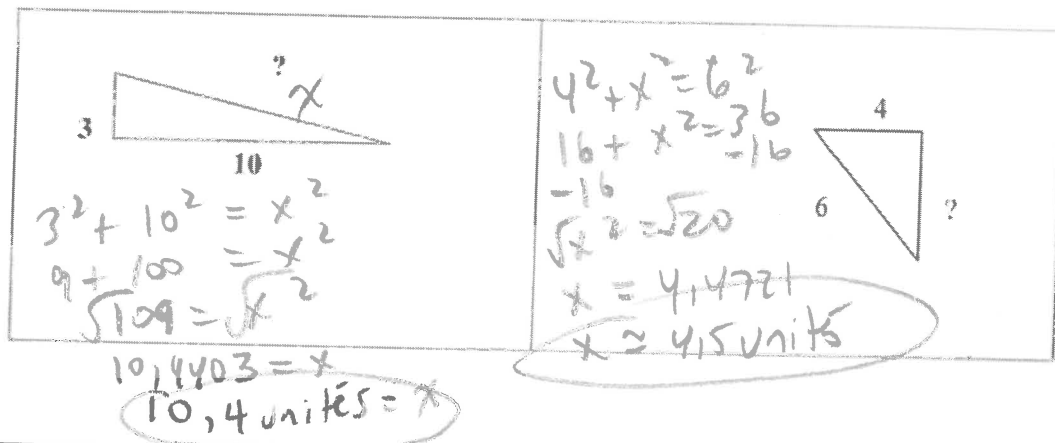 ?
x
3
10
3² + 10² = x²
9 + 100 = x²
√109 = √x²
10,4403 = x
10,4 unités = x
4² + x² = 6²
16 + x² = 36
-16
-16
√x² = √20
x = 4,4721
x ≃ 4,5 unités
4
6
?